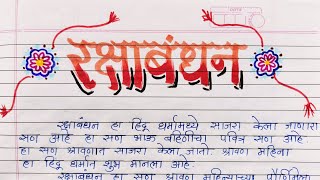 रक्षाबंधन
रक्षाबंधन हा हिंदू धर्मामध्ये साजरा केला जाणारा
सण आहे हा सण भाऊ बहिणीचा पवित्र सण आहे
हा सण श्रावणात साजरा केला जातो. श्रावण महिना
हा हिंदू धर्मात शुभ मानला आहे.
रक्षाबंधन हा सण श्रावण महिन्याच्या